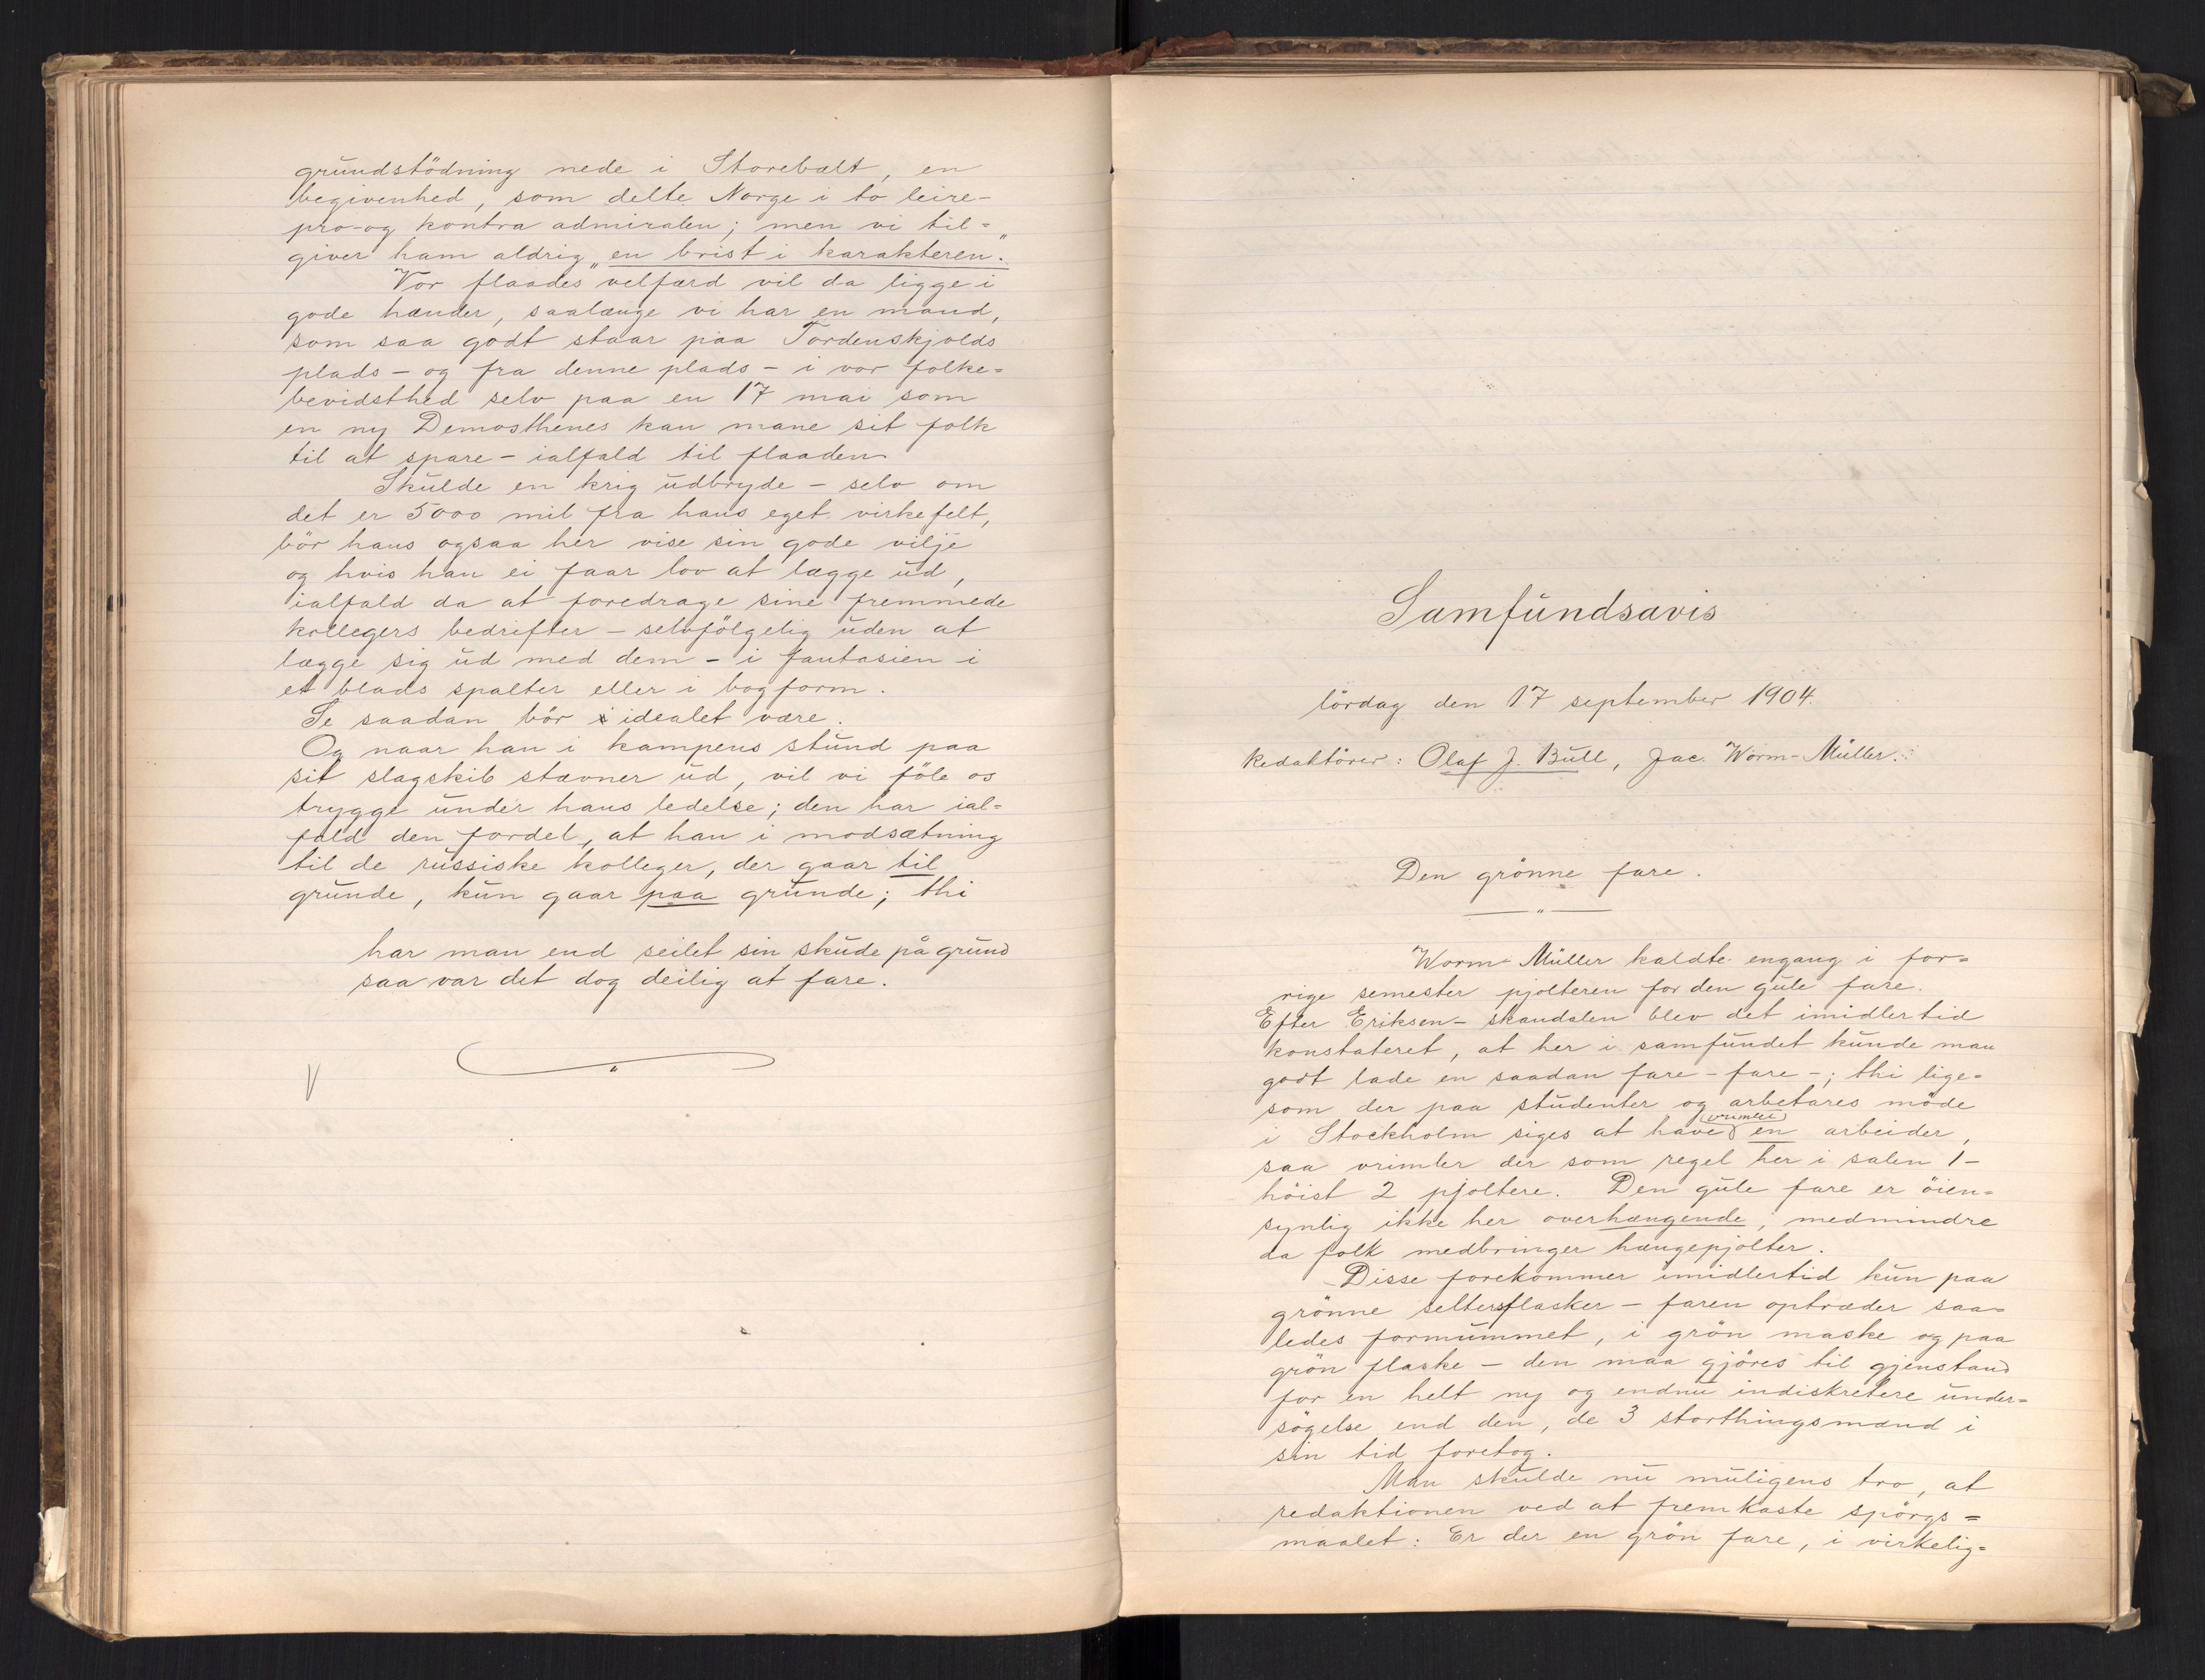 grundstödning nede i Storebælt, en
begivenhed, som delte Norge i to leire-
pro- og kontra admiralen; men vi til=
giver ham aldrig „en brist i karakteren."
Vor flaades velfærd vil da ligge i
gode hænder, saalænge vi har en mand,
som saa godt staar paa Tordenskjolds
plads - og fra denne plads - i vor folke=
bevidsthed selv paa en 17 mai som
en ny Demosthenes kan mane sit folk
til at spare - ialfald til flaaden
Skulde en krig udbryde - selv om
det er 5000 mil fra hans eget virkefelt,
bör hans ogsaa her vise sin gode vilje
og hvis han ei faar lov at lægge ud,
ialfald da at foredrage sine fremmede
kollegers bedrifter - selvfölgelig uden at
lægge sig ud med dem - i fantasien i
et blads spalter eller i bogform.
Se saadan bör idealet være.
Og naar han i kampens stund paa
sit slagskib stævner ud, vil vi föle os
trygge under hans ledelse; den har ial=
fald den fordel, at han i modsætning
til de russiske kolleger, der gaar til
grunde, kun gaar paa grunde; thi
har man end seilet sin skude på grund
saa var det dog deilig at fare.
V
Samfundsavis
lördag den 17 september 1904.
Redaktörer: Olaf J. Bull, Jac. Worm-Müller.
Den grönne fare.
Worm-Müller kaldte engang i for=
rige semester pjolteren for den gule fare.
Efter Eriksen-skandalen blev det imidlertid
konstateret, at her i samfundet kunde man
godt lade en saadan fare - fare -; thi lige=
som der paa studenter og arbetares möde
i Stockholm siges at have vrimlet en arbeider,
saa vrimler der som regel her i salen 1-
höist 2 pjoltere. Den gule fare er öien=
synlig ikke her overhængende, medmindre
da folk medbringer hængepjolter.
Disse forekommer imidlertid kun paa
grönne seltersflasker - faren optræder saa=
ledes formummet, i grön maske og paa
grön flaske - den maa gjöres til gjenstand
for en helt ny og endnu indiskretere under=
sögelse end den, de 3 storthingsmænd i
sin tid foretog.
Man skulde nu muligens tro, at
redaktionen ved at fremkaste spörgs=
maalet: Er der en grön fare, i virkelig=